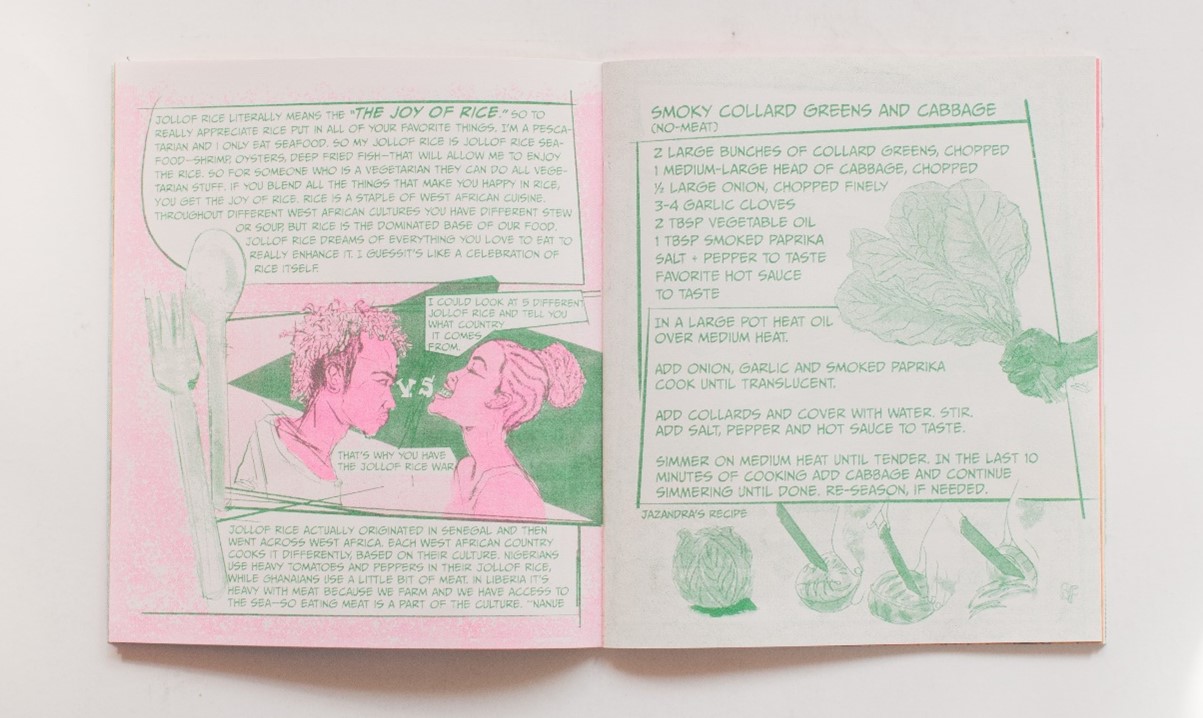 JOLLOF RICE LITERALLY MEANS THE "THE JOY OF RICE." SO TO
REALLY APPRECIATE RICE PUT IN ALL OF YOUR FAVORITE THINGS. I'M A PESCA-
TARIAN AND I ONLY EAT SEAFOOD. SO MY JOLLOF RICE IS JOLLOF RICE SEA-
FOOD—SHRIMP, OYSTERS, DEEP FRIED FISH—THAT WILL ALLOW ME TO ENJOY
THE RICE. SO FOR SOMEONE WHO IS A VEGETARIAN THEY CAN DO ALL VEGE-
TARIAN STUFF. IF YOU BLEND ALL THE THINGS THAT MAKE YOU HAPPY IN RICE,
YOU GET THE JOY OF RICE. RICE IS A STAPLE OF WEST AFRICAN CUISINE.
THROUGHOUT DIFFERENT WEST AFRICAN CULTURES YOU HAVE DIFFERENT STEW
OR SOUP, BUT RICE IS THE DOMINATED BASE OF OUR FOOD.
JOLLOF RICE DREAMS OF EVERYTHING YOU LOVE TO EAT TO
REALLY ENHANCE IT. I GUESSIT'S LIKE A CELEBRATION OF
RICE ITSELF.
I COULD LOOK AT 5 DIFFERENT
JOLLOF RICE AND TELL YOU
WHAT COUNTRY
IT COMES
FROM.
VS
THAT'S WHY YOU HAVE
THE JOLLOF RICE WAR
JOLLOF RICE ACTUALLY ORIGINATED IN SENEGAL AND THEN
WENT ACROSS WEST AFRICA. EACH WEST AFRICAN COUNTRY
COOKS IT DIFFERENTLY, BASED ON THEIR CULTURE. NIGERIANS
USE HEAVY TOMATOES AND PEPPERS IN THEIR JOLLOF RICE,
WHILE GHANAIANS USE A LITTLE BIT OF MEAT. IN LIBERIA IT'S
HEAVY WITH MEAT BECAUSE WE FARM AND WE HAVE ACCESS TO
THE SEA—SO EATING MEAT IS A PART OF THE CULTURE. ~NANUE
SMOKY COLLARD GREENS AND CABBAGE
(NO-MEAT)
2 LARGE BUNCHES OF COLLARD GREENS, CHOPPED
1 MEDIUM-LARGE HEAD OF CABBAGE, CHOPPED
½ LARGE ONION, CHOPPED FINELY
3-4 GARLIC CLOVES
2 TBSP VEGETABLE OIL
1 TBSP SMOKED PAPRIKA
SALT + PEPPER TO TASTE
FAVORITE HOT SAUCE
TO TASTE
IN A LARGE POT HEAT OIL
OVER MEDIUM HEAT.
ADD ONION, GARLIC AND SMOKED PAPRIKA
COOK UNTIL TRANSLUCENT.
ADD COLLARDS AND COVER WITH WATER. STIR.
ADD SALT, PEPPER AND HOT SAUCE TO TASTE.
SIMMER ON MEDIUM HEAT UNTIL TENDER. IN THE LAST 10
MINUTES OF COOKING ADD CABBAGE AND CONTINUE
SIMMERING UNTIL DONE. RE-SEASON, IF NEEDED.
JAZANDRA'S RECIPE